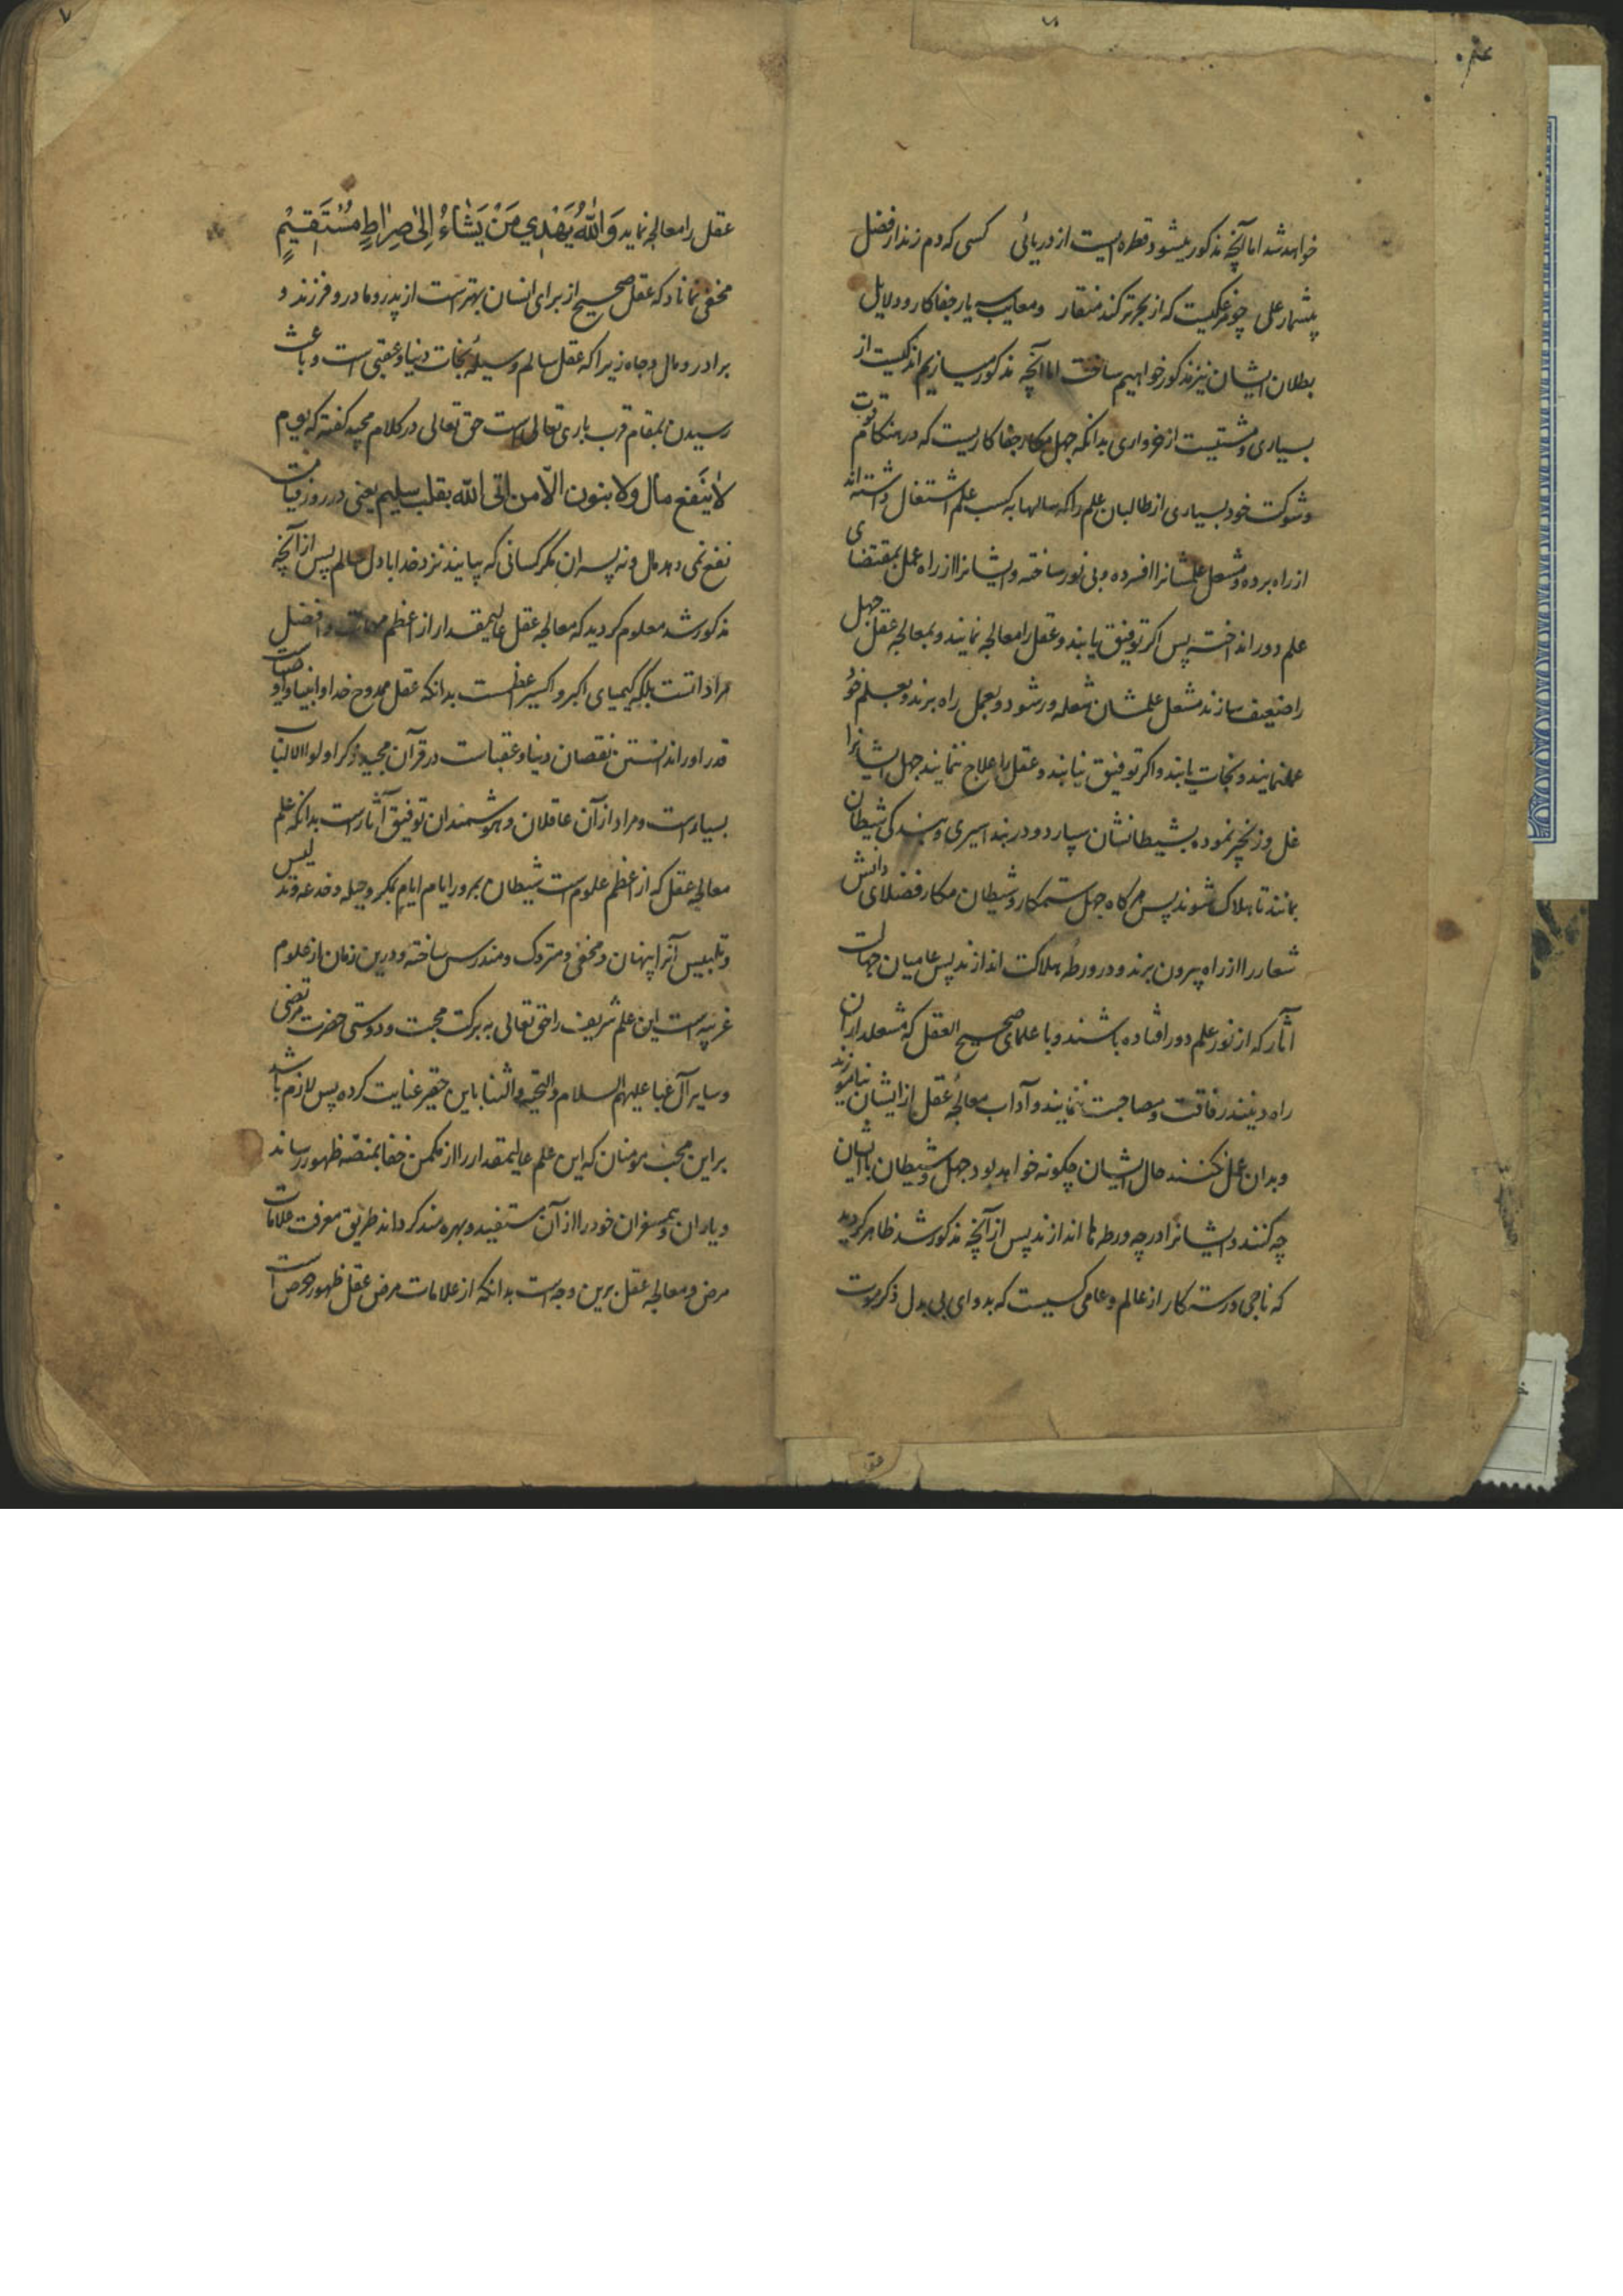 خواهد شد اما آنچه مذکور میشود قطره ایست از دریائی کسی که دم زند از فضل
بیشمار علی چو مرغکیست که از بحر تر کند منقار و معایب بسیار جفاکار و دلایل
بطلان ایشان نیز مذکور خواهیم ساخت اما آنچه مذکور میسازیم اندکیست از
بسیاری و مشتیست از خرواری بدانکه جهل مکار جفاکاریست که در هنکام قوت
و شوکت خود بسیاری از طالبان علم را که سالها به کسب علم اشتغال داشته اند
از راه برده و مشعل علمشانرا افسرده و بی نور ساخته و ایشانرا از راه عمل بمقتضای
علم دور انداخته پس اکر توفیق یابند و عقل را معالجه نمایند و بمعالجه عقل جهل
را ضعیف سازند مشعل علمشان شعله ور شود و بعمل راه برند و بعلم خود
عمل نمایند و نجات یابند و اکر توفیق نیابند و عقل را علاج ننمایند جهل ایشانرا
غل و زنجیر نموده بشیطانشان سپارد و در بند اسیری و بندکی شیطان
بمانند تا هلاک شوند پس هرکاه جهل ستمکار و شیطان مکار فضلای دانش
شعار را از راه بیرون برند و در ورطهٔ هلاکت اندازند پس عامیان جهالت
آثار که از نور علم دور افتاده باشند و با علمای صحیح العقل که مشعلداران
راه دینند رفاقت و مصاحبت ننمایند و آداب معالجهٔ عقل از ایشان نیاموزند
و بدان عمل نکنند حال ایشان چکونه خواهد بود جهل و شیطان با ایشان
چه کنند و ایشانرا در چه ورطه ها اندازند پس از آنچه مذکور شد ظاهر کردید
که ناجی و رستکار از عالم و عامی کسیست که بدوای بی بدل ذکر موت
عقل را معالجه نماید وَاللّٰهُ یَهْدِي مَنْ یَشَاءُ اِلیٰ صِرَاطٍ مُسْتَقِیْمٍ
مخفی نماناد که عقل صحیح از برای انسان بهتر است از پدر و مادر و فرزند و
برادر و مال و جاه زیرا که عقل سالم وسیلهٔ نجات دنیا و عقبی است و باعث
رسیدن بمقام قرب باری تعالی است حق تعالی در کلام مجید کفته که یوم
لا ینفع مال ولا بنون الّا من اتی اللّه بقلب سلیم یعنی در روز قیامت
نفع نمی دهد مال و نه پسران مکر کسانی که بیایند نزد خدا با دل سالم پس از آنچه
مذکور شد معلوم کردید که معالجه عقل عالیمقدار از اعظم مهمات و افضل
مرادات است بلکه کیمیای اکبر و اکسیر اعظمست بدانکه عقل ممدوح خدا و انبیا و اوصیاست
قدر او را ندانستن نقصان دنیا و عقباست در قرآن مجید ذکر اولوا الالباب
بسیار است و مراد از آن عاقلان و هوشمندان توفیق آثار است بدانکه علم
معالجه عقل که از اعظم علومست شیطان بمرور ایام ایام بمکر و حیله و خدعه و تدلیس
و تلبیس آنرا پنهان و مخفی و متروک و مندرس ساخته و درین زمان از علوم
غریبه است این علم شریف را حق تعالی به برکت محبت و دوستی حضرت مرتضی
و سایر آل عبا علیهم السلام و التحیه و الثنا باین حقیر عنایت کرده پس لازم باشد
بر این محب مومنان که این علم عالیمقدار را از مکمن خفا بمنصّه ظهور رساند
و یاران و همسفران خود را از آن مستفید و بهره مند کرداند طریق معرفت علامات
مرض و معالجه عقل برین وجه است بدانکه از علامات مرض عقل ظهور حرص است